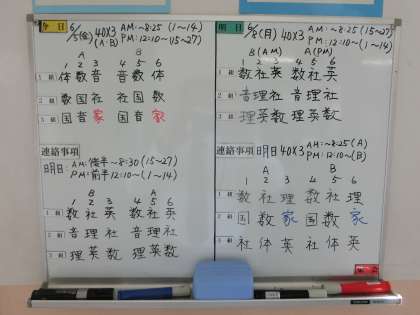 今日 6/5(金) 40X3 (A・B) AM:~8:25(1~14)
PM:12:10~(15~27)
A B
1 2 3 4 5 6
1組 体数音 音数体
2組 数国社 社国数
3組 国音家 国音家
連絡事項
明日: AM:後半~8:30(15~27)
PM:前半12:10~(1~14)
B A
1 2 3 4 5 6
1組 数社英 数社英
2組 音理社 音理社
3組 理英数 理英数
明日 6/8(月) 40X3 AM:~8:25(15~27)
PM:12:10~(1~14)
B(AM) A(PM)
1 2 3 4 5 6
1組 数社英 数社英
2組 音理社 音理社
3組 理英数 理英数
連絡事項 明日40X3 AM:~8:25(A)
PM:12:10~(B)
A B
1 2 3 4 5 6
1組 数社理 数社理
2組 国数家 国数家
3組 社体英 社体英